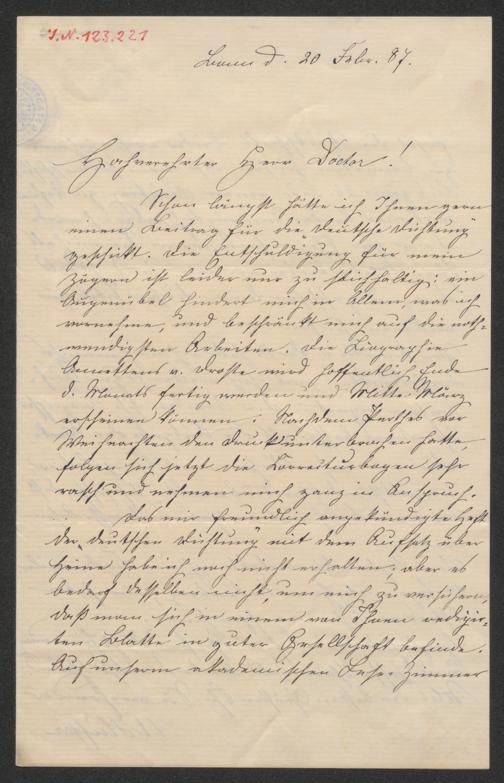 I.N. 123.221
Bonn d. 20 Febr. 87.
Hochverehrter Herr Doctor!
Schon längst hätte ich Ihnen gern
einen Beitrag für die „Deutsche Dichtung“
geschickt. Die Entschuldigung für mein
Zögern ist leider nur zu stichhaltig: ein
Augenübel hindert mich in Allem, was ich
vornehme, und beschränkt mich auf die noth-
wendigsten Arbeiten. Die Biographie
Annettens v. Droste wird hoffentlich Ende
d. Monats fertig werden und Mitte März
erscheinen können. Nachdem Perthes vor
Weihnachten den Druck unterbrochen hatte,
folgen sich jetzt die Correcturbogen sehr
rasch und nehmen mich ganz in Anspruch.
Das mir freundlich angekündigte Heft
der „Deutschen Dichtung“ mit dem Aufsatz über
Heine habe ich noch nicht erhalten; aber es
bedarf desselben nicht, um mich zu versichern,
daß man sich in einem von Ihnen redigir-
ten Blatte in guter Gesellschaft befinde.
Auf unserm akademischen Lese-Zimmer